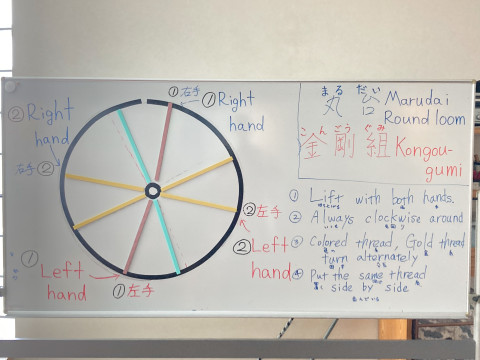 ①右手
①Right
hand
② Right
hand
右手②
②左手
② Left
hand
①
Left
hand
①左手
まる だい
丸 台
Marudai
Round loom
こん ごう ぐみ
金 剛 組
Kongou-
gumi
① Lift with both hands.
② Always clockwise around
③ Colored thread, Gold thread
turn alternately
④ Put the same thread
side by side